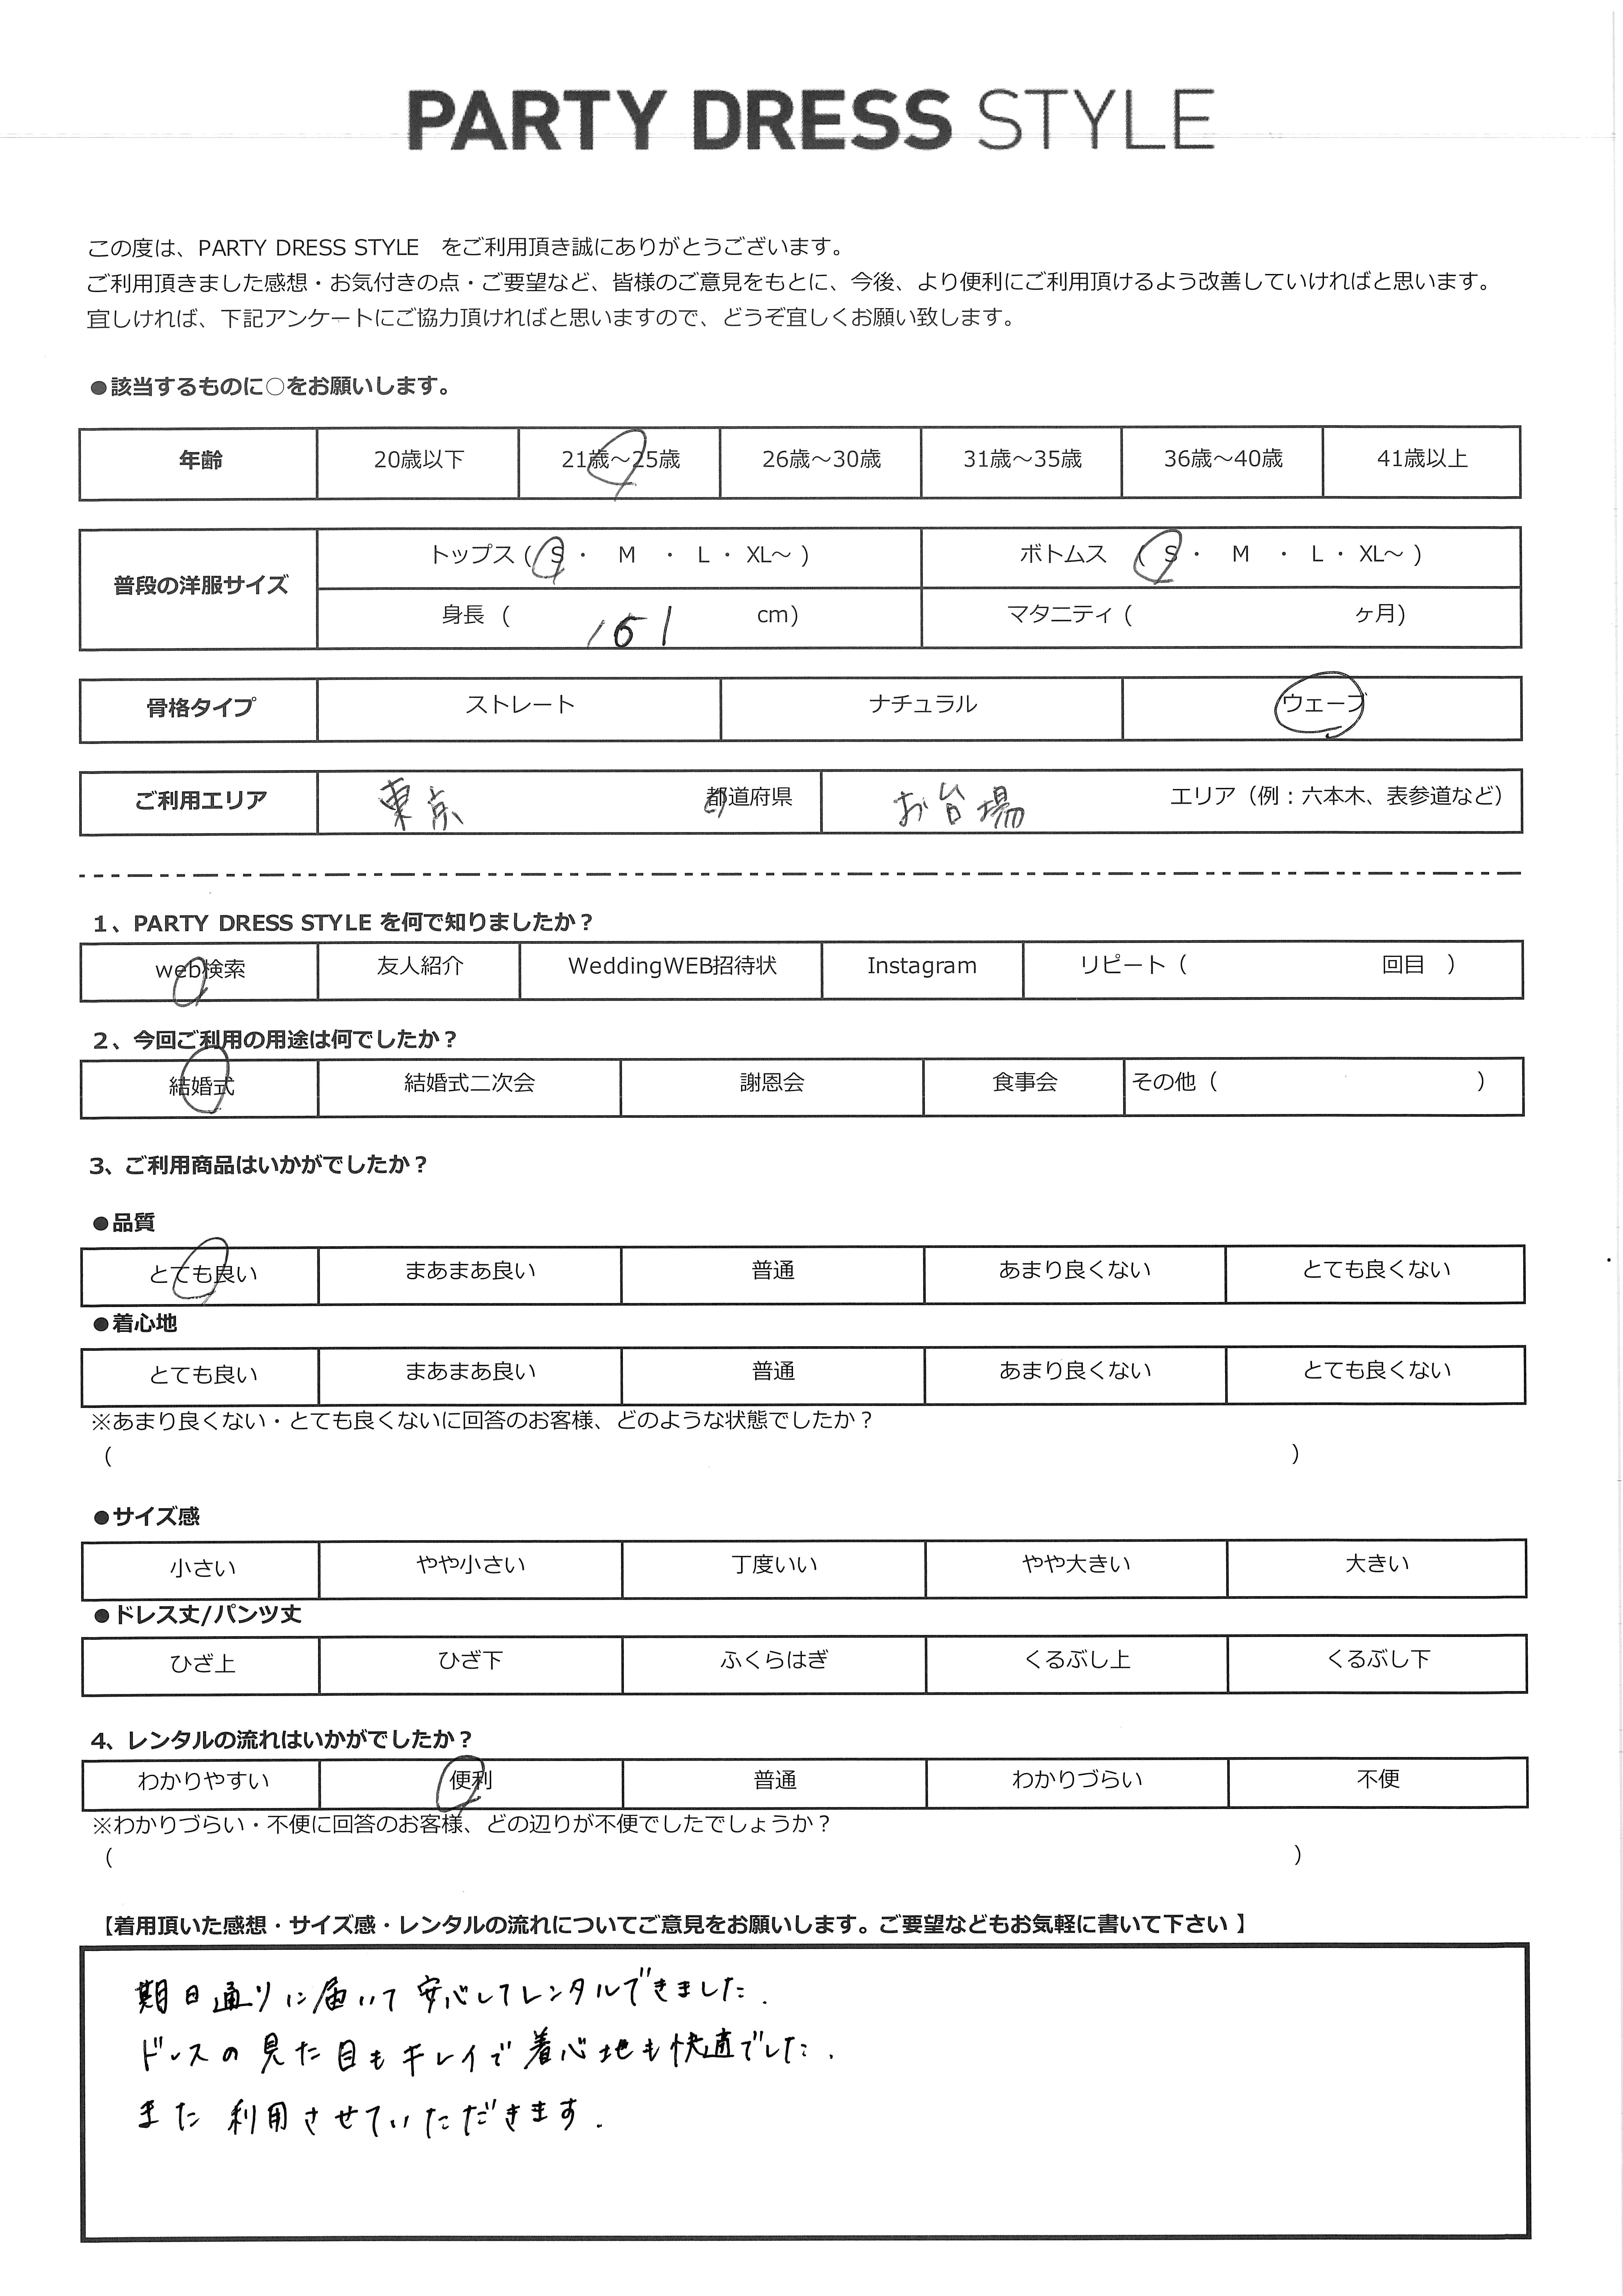 PARTY DRESS STYLE
この度は、PARTY DRESS STYLE　をご利用頂き誠にありがとうございます。
ご利用頂きました感想・お気付きの点・ご要望など、皆様のご意見をもとに、今後、より便利にご利用頂けるよう改善していければと思います。
宜しければ、下記アンケートにご協力頂ければと思いますので、どうぞ宜しくお願い致します。
●該当するものに○をお願いします。
年齢 20歳以下 21歳～25歳 26歳～30歳 31歳～35歳 36歳～40歳 41歳以上
普段の洋服サイズ
トップス ( S ・ M ・ L ・ XL～ ) ボトムス ( S ・ M ・ L ・ XL～ )
身長 ( 151 cm) マタニティ ( ヶ月)
骨格タイプ ストレート ナチュラル ウェーブ
ご利用エリア 東京 都道府県 お台場 エリア（例：六本木、表参道など）
1、PARTY DRESS STYLE を何で知りましたか？
web検索 友人紹介 WeddingWEB招待状 Instagram リピート（ 回目 ）
2、今回ご利用の用途は何でしたか？
結婚式 結婚式二次会 謝恩会 食事会 その他（ ）
3、ご利用商品はいかがでしたか？
●品質
とても良い まあまあ良い 普通 あまり良くない とても良くない
●着心地
とても良い まあまあ良い 普通 あまり良くない とても良くない
※あまり良くない・とても良くないに回答のお客様、どのような状態でしたか？
（ ）
●サイズ感
小さい やや小さい 丁度いい やや大きい 大きい
●ドレス丈/パンツ丈
ひざ上 ひざ下 ふくらはぎ くるぶし上 くるぶし下
4、レンタルの流れはいかがでしたか？
わかりやすい 便利 普通 わかりづらい 不便
※わかりづらい・不便に回答のお客様、どの辺りが不便でしたでしょうか？
（ ）
【着用頂いた感想・サイズ感・レンタルの流れについてご意見をお願いします。ご要望などもお気軽に書いて下さい 】
期日通りに届いて安心してレンタルできました.
ドレスの見た目もキレイで着心地も快適でした.
また利用させていただきます.